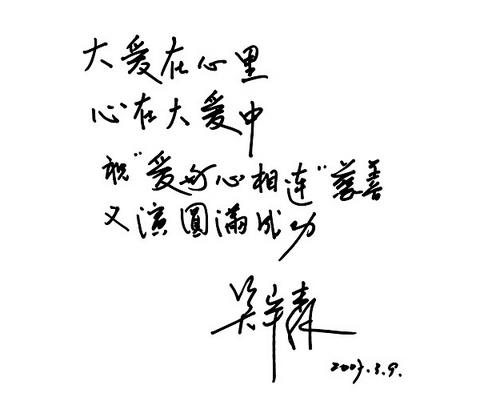 大爱在心里
心在大爱中
祝"爱与心相连"慈善
义演圓滿成功
吴宇森
2007.3.9.